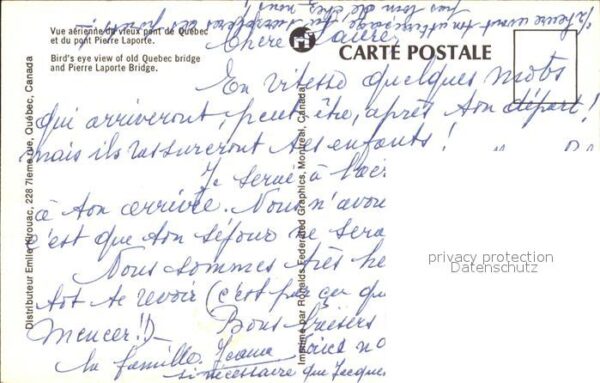 Vue aérienne du vieux pont de Québec
et du pont Pierre Laporte.
Bird's eye view of old Quebec bridge
and Pierre Laporte Bridge.
CARTE POSTALE
Distributeur Emile Kirouac, 228 7ième rue, Québec, Canada
Imprimé par Ronalds Federated Graphics, Montréal, Canada
Chère Laure,
En vitesse quelques mots
qui arriveront, peut-être, après ton départ!
mais ils rassureront tes enfants!
Je serai à l'aér
à ton arrivée. Nous n'avon
c'est que ton séjour ne sera
Nous sommes très he
tot te revoir (c'est par ça qu
mencer!)- Bons baisers
la famille. Jeanne
si nécessaire que Jacques
privacy protection
Datenschutz